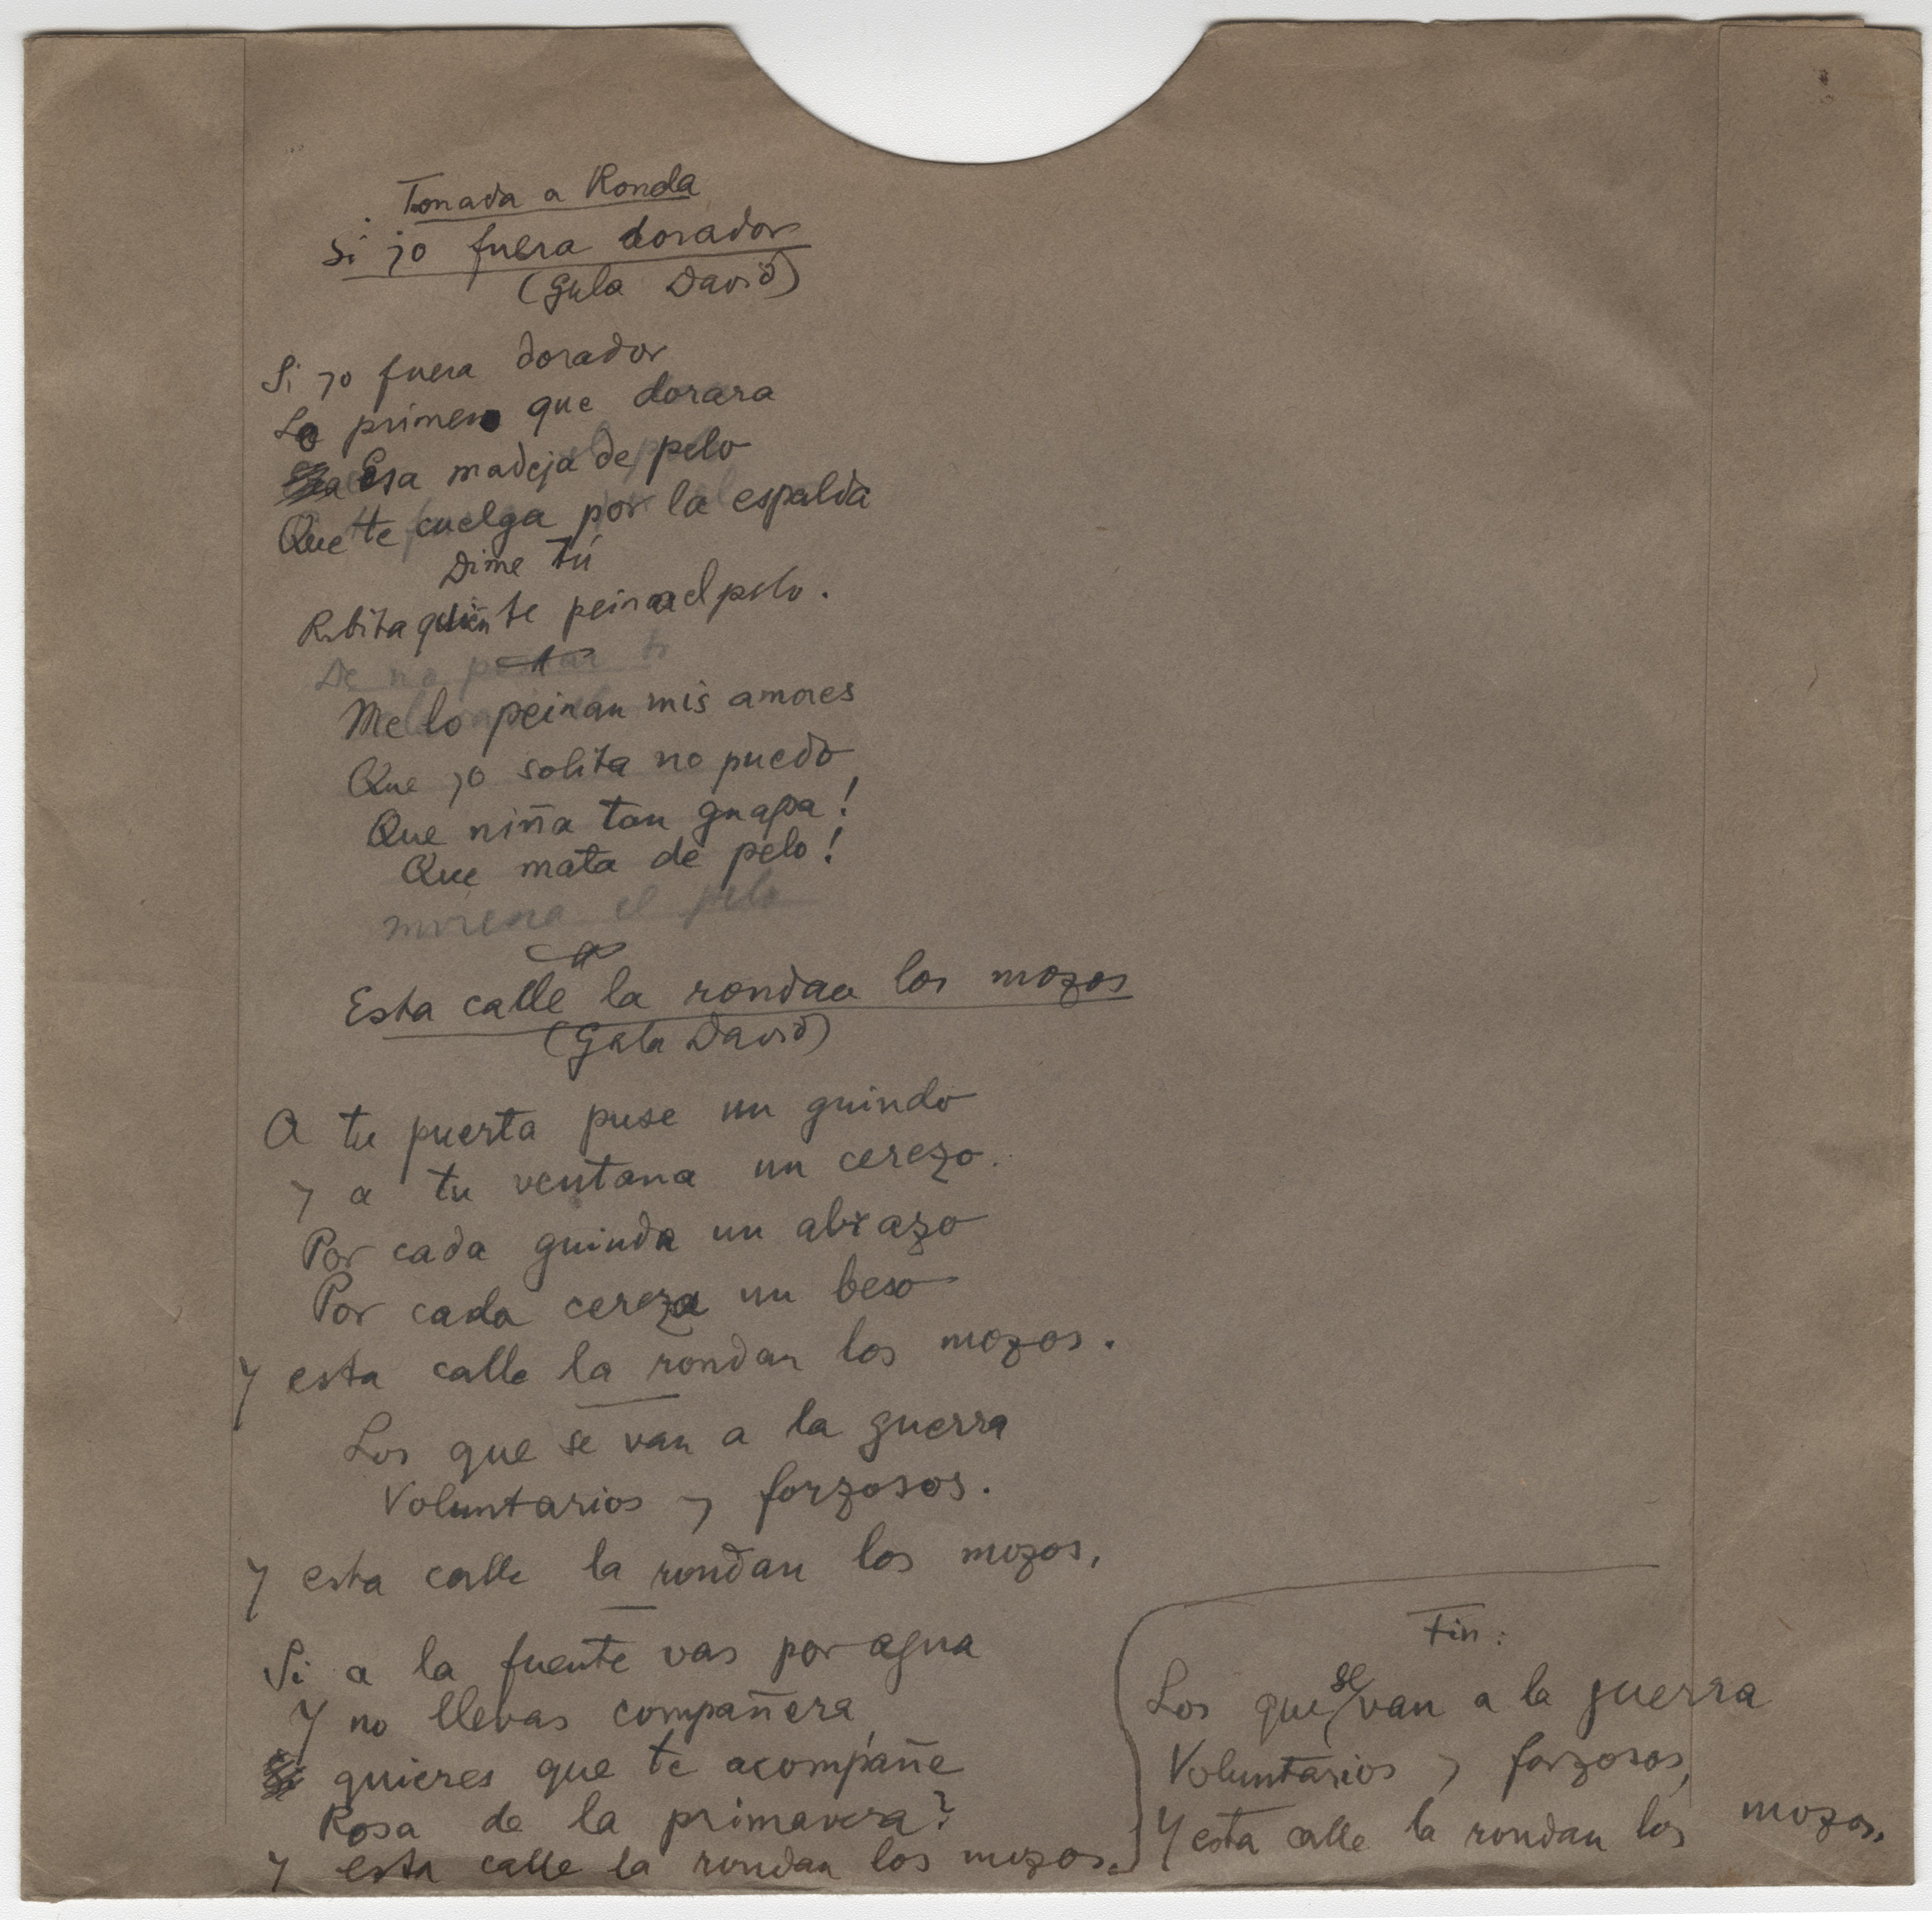 Tonada a Ronda
Si yo fuera dorador
(Gala David)
Si yo fuera dorador
Lo primero que dorara
Esa madeja de pelo
Que te cuelga por la espalda
Dime tú
Rubita quién te peina el pelo.
De no
Me lo peinan mis amores
Que yo solita no puedo
Que niña tan guapa!
Que mata de pelo!
morena el pelo
Esta calle la rondan los mozos
(Gala David)
A tu puerta puse un guindo
y a tu ventana un cerezo.
Por cada guinda un abrazo
Por cada cereza un beso
Y esta calle la rondan los mozos.
Los que se van a la guerra
Voluntarios y forzosos.
Y esta calle la rondan los mozos,
Si a la fuente vas por agua
Y no llevas compañera
quieres que te acompañe
Rosa de la primavera?
y esta calle la rondan los mozos.
Fin:
Los que se van a la guerra
Voluntarios y forzosos,
Y esta calle la rondan los mozos,